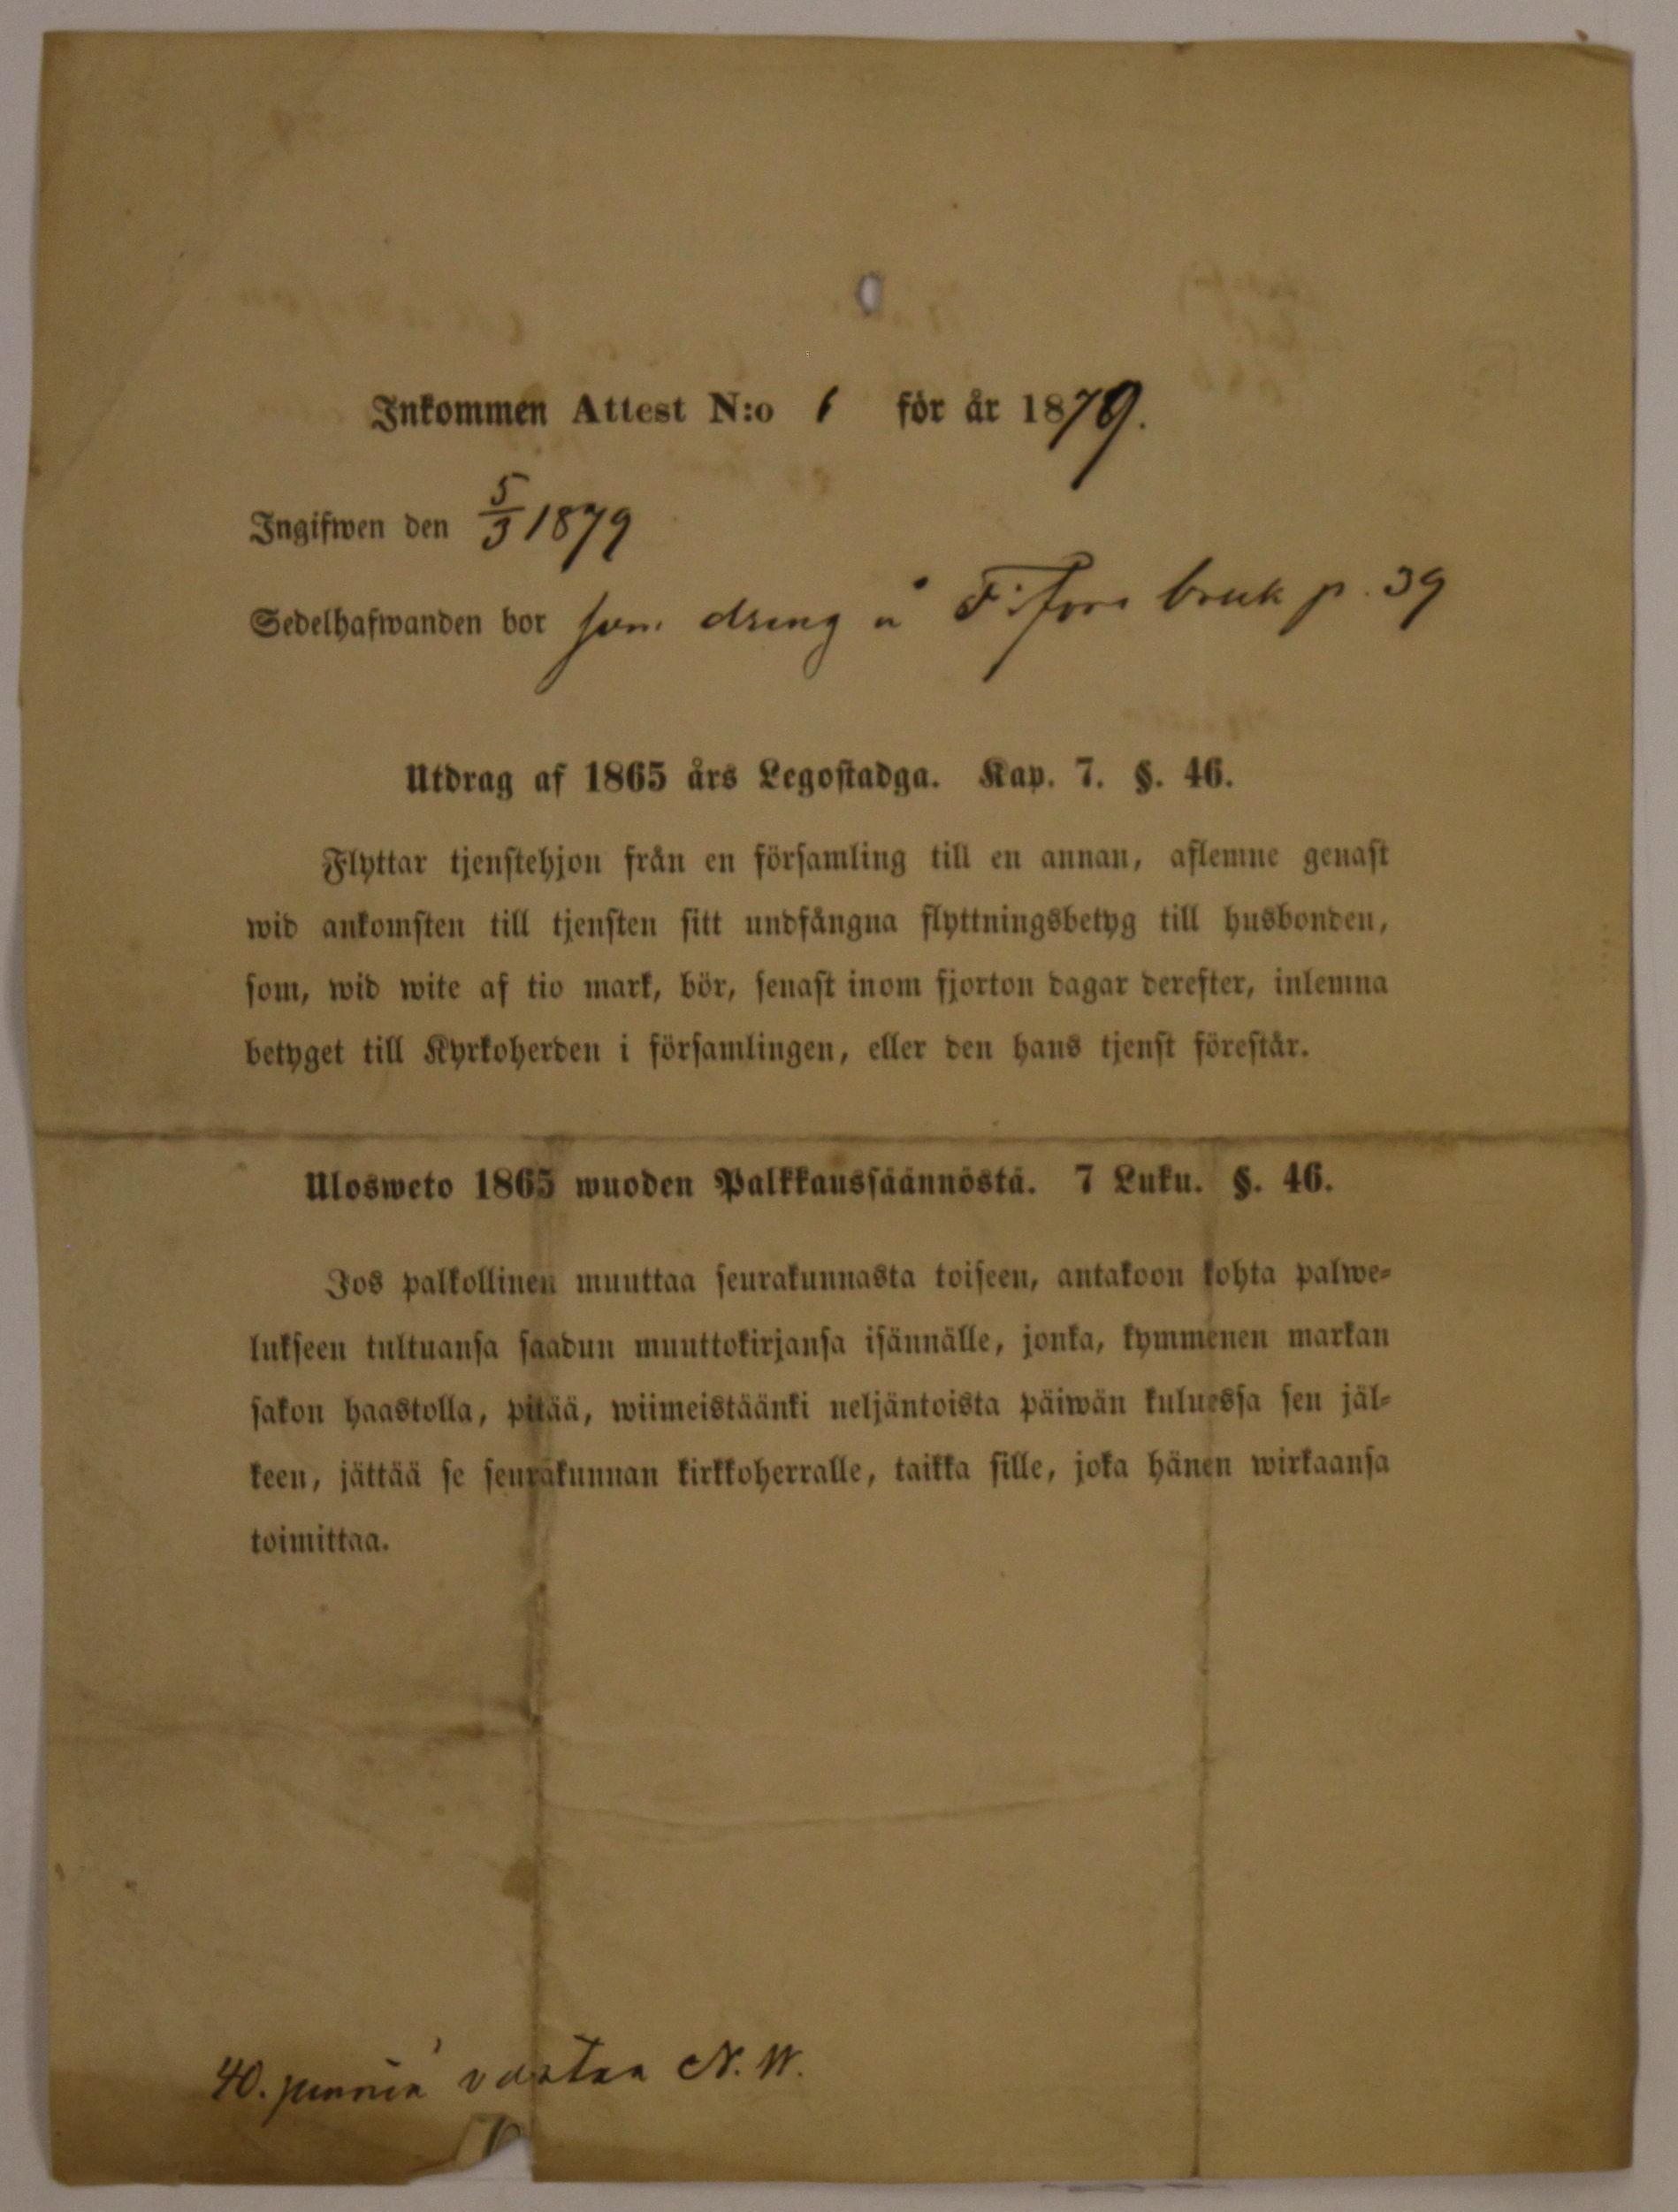 Inkommen Attest N:o 6 för år 1879.
Ingifwen den 5/3 1879
Sedelhafwanden bor som dreng å Fifors bruk p. 39
Utdrag af 1865 års Legostadga. Kap. 7. §. 46.
Flyttar tjenstehjon från en församling till en annan, aflemne genast
wid ankomsten till tjensten sitt undfångna flyttningsbetyg till husbonden,
som, wid wite af tio mark, bör, senast inom fjorton dagar derefter, inlemna
betyget till Kyrkoherden i församlingen, eller den hans tjenst förestår.
Ulosweto 1865 wuoden Palkkaussäännöstä. 7 Luku. §. 46.
Jos palkollinen muuttaa seurakunnasta toiseen, antakoon kohta palwe-
lukseen tultuansa saadun muuttokirjansa isännälle, jonka, kymmenen markan
sakon haastolla, pitää, wiimeistäänki neljäntoista päiwän kuluessa sen jäl-
keen, jättää se seurakunnan kirkkoherralle, taikka sille, joka hänen wirkaansa
toimittaa.
40. penniä vastaa N. W.